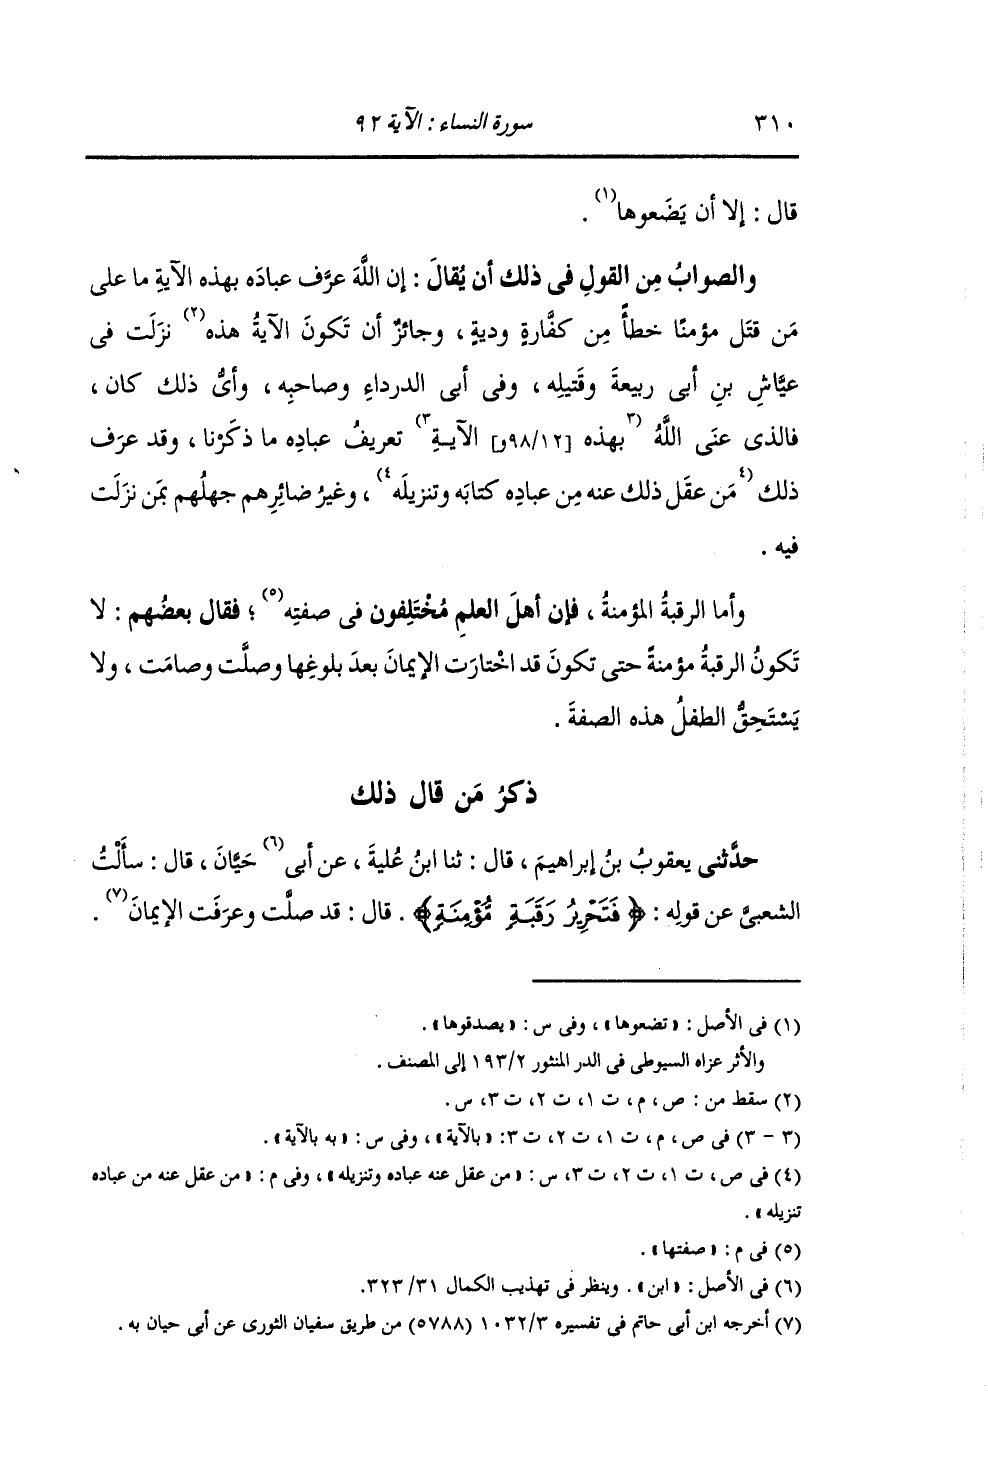 ٣١٠ سورة النساء : الآية ٩٢
قال : إلا أن يَضَعوها(١) .
والصوابُ مِن القولِ فى ذلك أن يُقالَ : إن اللَّهَ عرَّف عبادَه بهذه الآيةِ ما على
مَن قتَل مؤمنًا خطأً مِن كفَّارةٍ وديةٍ ، وجائزٌ أن تَكونَ الآيةُ هذه(٢) نزَلَت فى
عيَّاشِ بنِ أبى ربيعةَ وقَتيلِه ، وفى أبى الدرداءِ وصاحبِه ، وأىُّ ذلك كان ،
فالذى عنَى اللَّهُ (٣بهذه [٩٨/١٢و] الآيـةِ٣) تعريفُ عبادِه ما ذكَرْنا ، وقد عرَف
ذلك (٤مَن عقَل ذلك عنه مِن عبادِه كتابَه وتنزيلَه٤) ، وغيرُ ضائرِهم جهلُهم بمَن نزَلَت
فيه .
وأما الرقبةُ المؤمنةُ ، فإن أهلَ العلمِ مُخْتَلِفون فى صفتِه(٥) ؛ فقال بعضُهم : لا
تَكونُ الرقبةُ مؤمنةً حتى تكونَ قد اختارَت الإيمانَ بعدَ بلوغِها وصلَّت وصامَت ، ولا
يَسْتَحِقُّ الطفلُ هذه الصفةَ .
ذكرُ مَن قال ذلك
حدَّثنى يعقوبُ بنُ إبراهيمَ ، قال : ثنا ابنُ عُليةَ ، عن أبى(٦) حَيَّانَ ، قال : سأَلْتُ
الشعبىَّ عن قولِه : ﴿ فَتَحْرِيرُ رَقَبَةٍ مُّؤْمِنَةٍ﴾ . قال : قد صلَّت وعرَفَت الإيمانَ(٧) .
(١) فى الأصل : «تضعوها» ، وفى س : «يصدقوها» .
والأثر عزاه السيوطى فى الدر المنثور ١٩٣/٢ إلى المصنف .
(٢) سقط من : ص ، م ، ت ١، ت ٢، ت ٣، س .
(٣ - ٣) فى ص ، م ، ت ١، ت ٢، ت ٣: «بالآية» ، وفى س : «به بالآية» .
(٤) فى ص ، ت ١، ت ٢، ت ٣، س : «من عقل عنه عباده وتنزيله» ، وفى م : «من عقل عنه من عباده
تنزيله» .
(٥) فى م : «صفتها» .
(٦) فى الأصل : «ابن» . وينظر فى تهذيب الكمال ٣٢٣/٣١.
(٧) أخرجه ابن أبى حاتم فى تفسيره ١٠٣٢/٣ (٥٧٨٨) من طريق سفيان الثورى عن أبى حيان به .